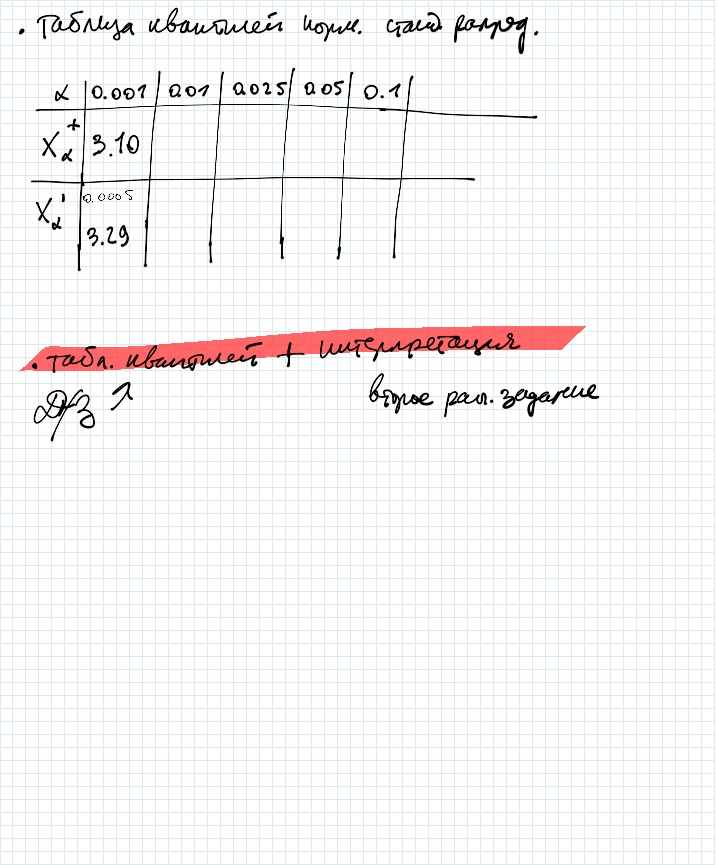 • Таблица квантилей норм. станд распред.
α 0.001 0.01 0.025 0.05 0.1
X⁺α 3.10
X'α 0.0005
3.29
• табл. квантилей + интерпретация
Д/З ↗ второе рал. задание